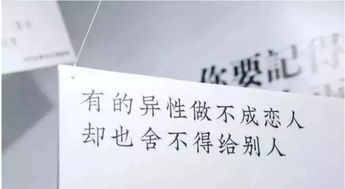 你要記得
有的异性做不成恋人
却也舍不得给别人